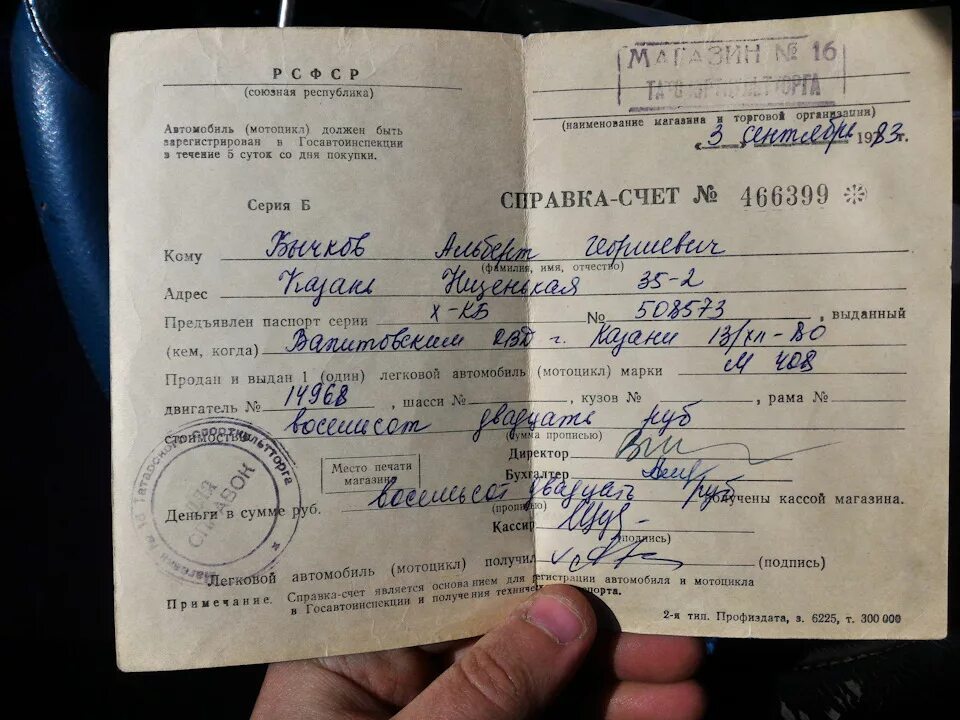 РСФСР
(союзная республика)
Автомобиль (мотоцикл) должен быть
зарегистрирован в Госавтоинспекции
в течение 5 суток со дня покупки.
МАГАЗИН № 16
(наименование магазина и торговой организации)
„ 3 " сентября 1983 г.
Серия Б
СПРАВКА-СЧЕТ № 466399
Кому Бычков Альберт Георгиевич
(фамилия, имя, отчество)
Адрес Казань 35-2
Предъявлен паспорт серии X-КБ № 508573, выданный
(кем, когда) г. Казани 13/XII-80
Продан и выдан 1 (один) легковой автомобиль (мотоцикл) марки М 408
двигатель № 14968, шасси №, кузов №, рама №
стоимостью восемьсот двадцать руб
(сумма прописью)
Директор
Место печати
магазина
Бухгалтер
Деньги в сумме руб. восемьсот двадцать руб получены кассой магазина.
(прописью)
Кассир
(подпись)
Легковой автомобиль (мотоцикл) получил
(подпись)
Примечание. Справка-счет является основанием для регистрации автомобиля и мотоцикла
в Госавтоинспекции и получения техн
2-я тип. Профиздата, з. 6225, т. 300 000
ДЛЯ
СПРАВОК